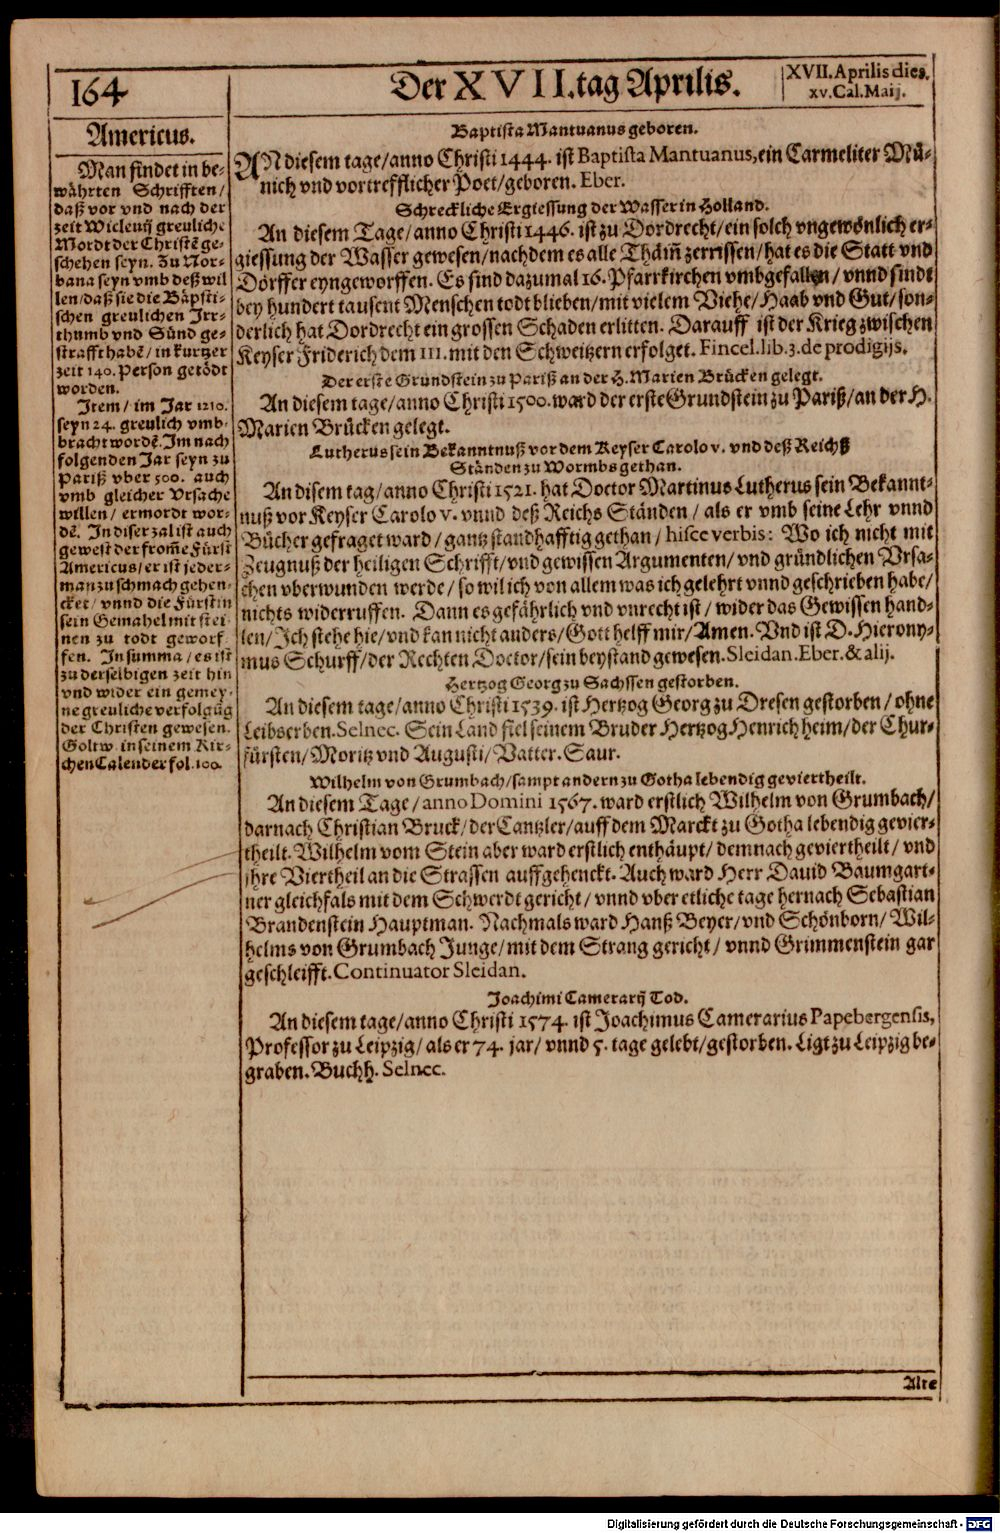 164
Der XVII. tag Aprilis.
XVII. Aprilis dies.
xv. Cal. Maij.
Americus.
Man findet in be-
währten Schrifften/
daß vor vnd nach der
zeit Wicleuij greuliche
Mordt der Christẽ ge-
schehen seyn. Zu Nor-
bana seyn vmb deß wil
len/ daß sie die Bäpsti-
schen greulichen Irr-
thumb vnd Sünd ge-
strafft habẽ/ in kurtzer
zeit 140. Person getödt
worden.
Item/ im Jar 1210.
seyn 24. greulich vmb-
bracht wordẽ. Im nach
folgenden Jar seyn zu
Pariß vber 500. auch
vmb gleicher Vrsache
willen/ ermordt wor-
dẽ. In diser zal ist auch
gewest der from̃e Fürst
Americus/ er ist jeder-
man zu schmach gehen-
cket/ vnnd die Fürstin
sein Gemahel mit stei
nen zu todt geworf
fen. In summa/ es ist
zu derselbigen zeit hin
vnd wider ein gemey-
ne greuliche verfolgũg
der Christen gewesen.
Goltw. in seinem Kir-
chen Calender fol. 100.
Baptista Mantuanus geboren.
AN diesem tage/ anno Christi 1444. ist Baptista Mantuanus, ein Carmeliter Mü-
nich vnd vortrefflicher Poet/ geboren. Eber.
Schreckliche Ergiessung der Wasser in Holland.
An diesem Tage/ anno Christi 1446. ist zu Dordrecht/ ein solch vngewönlich er-
giessung der Wasser gewesen/ nachdem es alle Thäm̃ zerrissen/ hat es die Statt vnd
Dörffer eyngeworffen. Es sind dazumal 16. Pfarrkirchen vmbgefallen/ vnnd sindt
bey hundert tausent Menschen todt blieben/ mit vielem Viehe/ Haab vnd Gut/ son-
derlich hat Dordrecht ein grossen Schaden erlitten. Darauff ist der Krieg zwischen
Keyser Friderich dem III. mit den Schweitzern erfolget. Fincel. lib. 3. de prodigijs.
Der erste Grundstein zu Pariß an der H. Marien Brücken gelegt.
An diesem tage/ anno Christi 1500. ward der erste Grundstein zu Pariß/ an der H.
Marien Brücken gelegt.
Lutherus sein Bekanntnuß vor dem Keyser Carolo v. vnd deß Reichs
Ständen zu Wormbs gethan.
An disem tag/ anno Christi 1521. hat Doctor Martinus Lutherus sein Bekannt-
nuß vor Keyser Carolo v. vnnd deß Reichs Ständen/ als er vmb seine Lehr vnnd
Bücher gefraget ward/ gantz standhafftig gethan/ hisce verbis: Wo ich nicht mit
Zeugnuß der heiligen Schrifft/ vnd gewissen Argumenten/ vnd gründlichen Vrsa-
chen vberwunden werde/ so wil ich von allem was ich gelehrt vnnd geschrieben habe/
nichts widerruffen. Dann es gefährlich vnd vnrecht ist/ wider das Gewissen hand-
len/ Ich stehe hie/ vnd kan nicht anders/ Gott helff mir/ Amen. Vnd ist D. Hierony-
mus Schurff/ der Rechten Doctor/ sein beystand gewesen. Sleidan. Eber. & alij.
Hertzog Georg zu Sachssen gestorben.
An diesem tage/ anno Christi 1539. ist Hertzog Georg zu Dresen gestorben/ ohne
Leibserben. Selnec. Sein Land fiel seinem Bruder Hertzog Henrich heim/ der Chur-
fürsten/ Moritz vnd Augusti/ Vatter. Saur.
Wilhelm von Grumbach/ sampt andern zu Gotha lebendig geviertheilt.
An diesem Tage/ anno Domini 1567. ward erstlich Wilhelm von Grumbach/
darnach Christian Bruck/ der Cantzler/ auff dem Marckt zu Gotha lebendig gevier-
theilt. Wilhelm vom Stein aber ward erstlich enthäupt/ demnach geviertheilt/ vnd
ihre Viertheil an die Strassen auffgehenckt. Auch ward Herr Dauid Baumgart-
ner gleichfals mit dem Schwerdt gericht/ vnnd vber etliche tage hernach Sebastian
Brandenstein Hauptman. Nachmals ward Hanß Beyer/ vnd Schönborn/ Wil-
helms von Grumbach Junge/ mit dem Strang gericht/ vnnd Grimmenstein gar
geschleifft. Continuator Sleidan.
Joachimi Camerarij Tod.
An diesem tage/ anno Christi 1574. ist Joachimus Camerarius Papebergensis,
Professor zu Leipzig/ als er 74. jar/ vnnd 5. tage gelebt/ gestorben. Ligt zu Leipzig be-
graben. Buchh. Selnec.
Alte
Digitalisierung gefördert durch die Deutsche Forschungsgemeinschaft - DFG